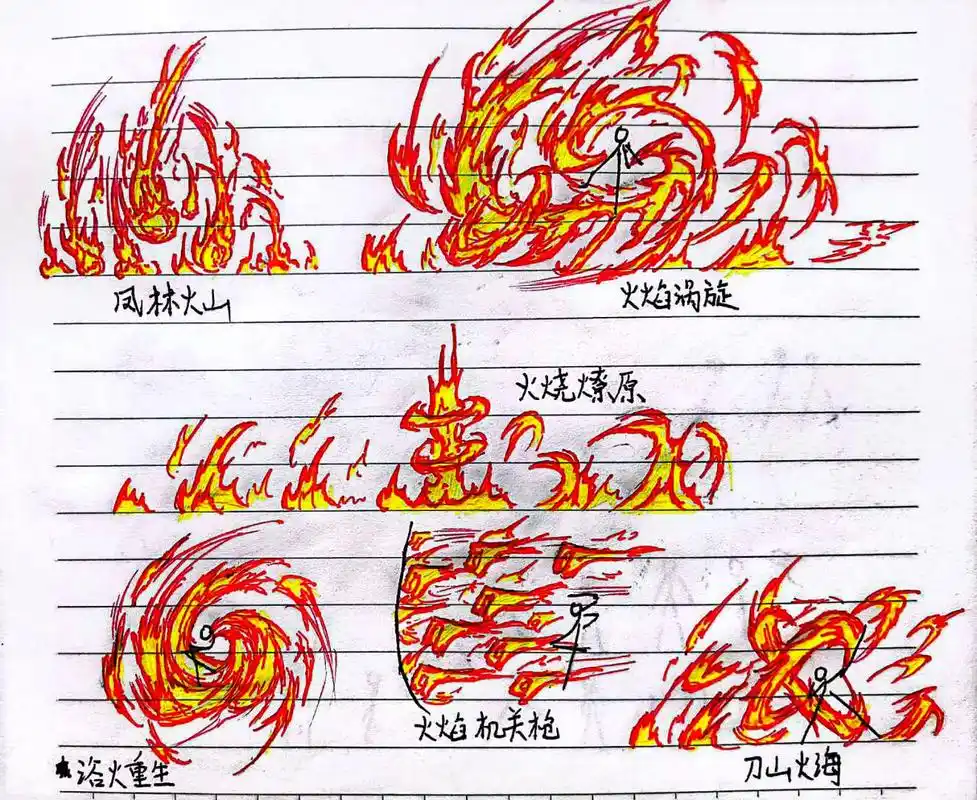 风林火山
火焰涡旋
火烧燎原
浴火重生
火焰机关枪
刀山火海